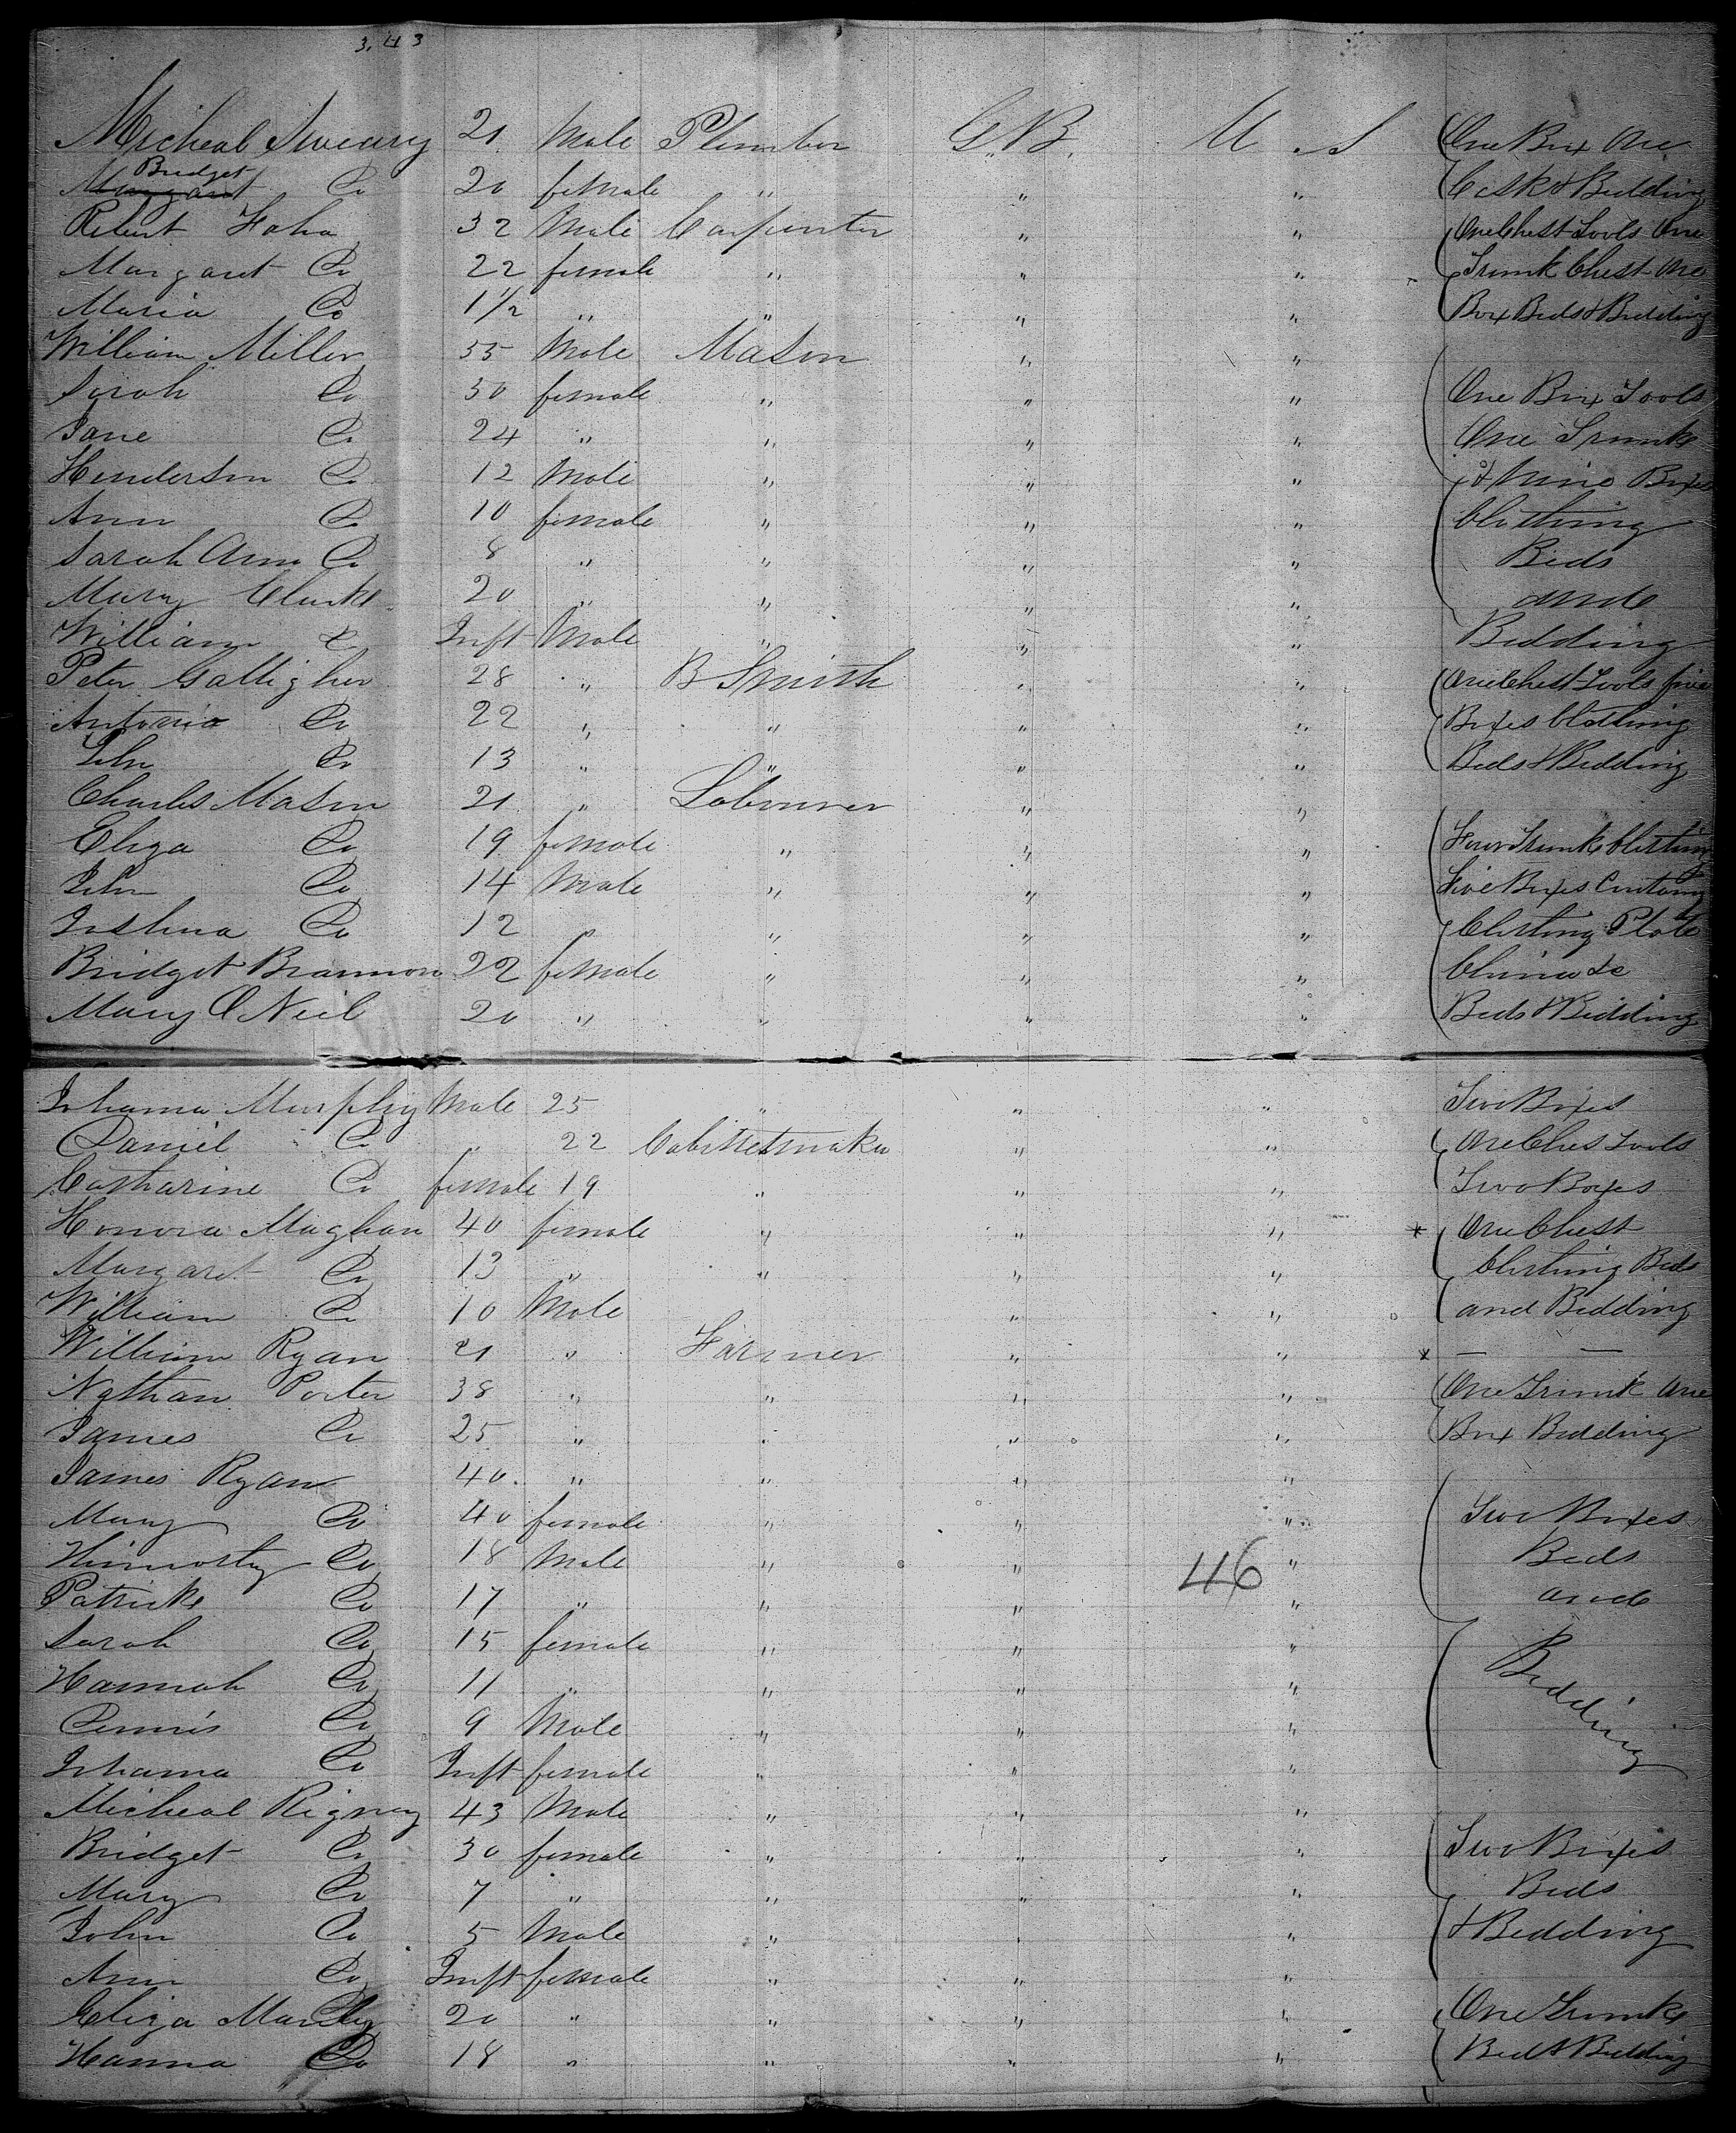 3.43
Micheal Sweeny 21 Male Plumber G.B. U S One Box One
Bridget
Margaret Do 20 female " " " Cask & Bedding
Robert Foha 32 Male Carpenter " " One Chest Tools One
Margaret Do 22 female " " " Trunk Chest One
Maria Do 1½ " " " " Box Beds & Bedding
William Miller 55 Male Mason " "
Sarah Do 50 female " " " One Box Tools
Jane Do 24 " " " " One Trunk
Henderson Do 12 Male " " " & Nine Boxes
Ann Do 10 female " " " Clothing
Sarah Ann Do 8 " " " " Beds
Mary Clarke 20 " " " " and
William Do Inft Male " " " Bedding
Peter Galligher 28 " B Smith " " One Chest Tools five
Antonio Do 22 " " " " Boxes Clothing
John Do 13 " " " " Beds & Bedding
Charles Mason 21 " Labourer " "
Eliza Do 19 female " " " Four Trunk Clothing
John Do 14 Male " " " Five Boxes Containg
Joshua Do 12 " " " Clothing Plate
Bridget Brannon 22 female " " " China &c
Mary O Neil 20 " " " " Beds & Bedding
Johanna Murphy Male 25 " " " Two Boxes
Daniel Do " 22 Cabinetmaker " " One Ches Tools
Catharine Do female 19 " " " Two Boxes
Honora Maghan 40 female " " " * One Chest
Margaret Do 13 " " " " Clothing Beds
William Do 10 Male " " and Bedding
William Ryan 21 " Farmer " " * — —
Nathan Porter 38 " " " " One Trunk One
James Do 25 " " " " Box Bedding
James Ryan 40 " " " "
Mary Do 40 female " " " Two Boxes
Do 18 Male " " 46 " Beds
Patrick Do 17 " " " " and
Sarah Do 15 female " " " Bedding
Hannah Do 11 " " " "
Dennis Do 9 Male " " "
Johanna Do Inft female " " "
Micheal Rigney 43 Male " " "
Bridget Do 30 female " " " Two Boxes
Mary Do 7 " " " " Beds
John Do 5 Male " " " & Bedding
Ann Do Inft female " " "
Eliza Manley 20 " " " " One Trunk
Hanna Do 18 " " " " Bed & Bedding